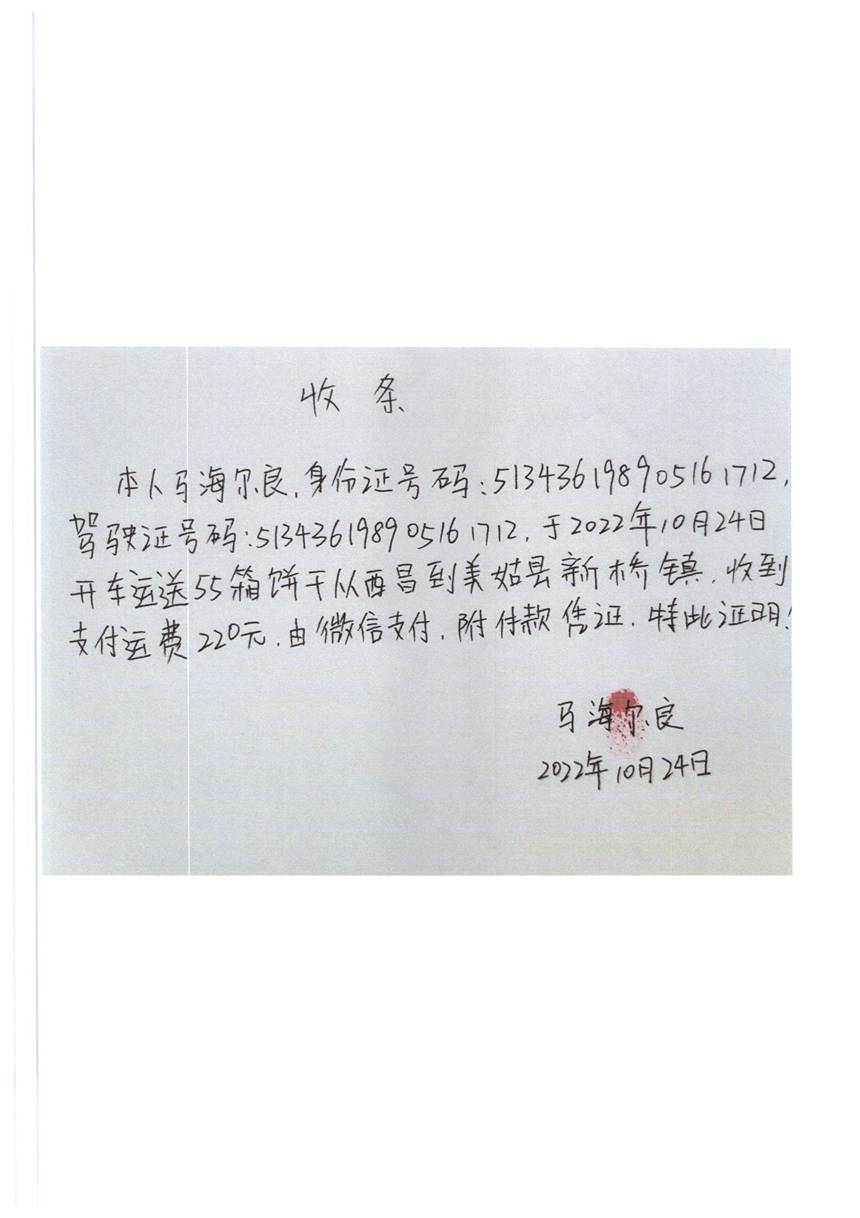 收条
本人马海尔良，身份证号码：513436198905161712，
驾驶证号码：513436198905161712，于2022年10月24日
开车运送55箱饼干从西昌到美姑县新桥镇，收到
支付运费220元，由微信支付，附付款凭证，特此证明！
马海尔良
2022年10月24日